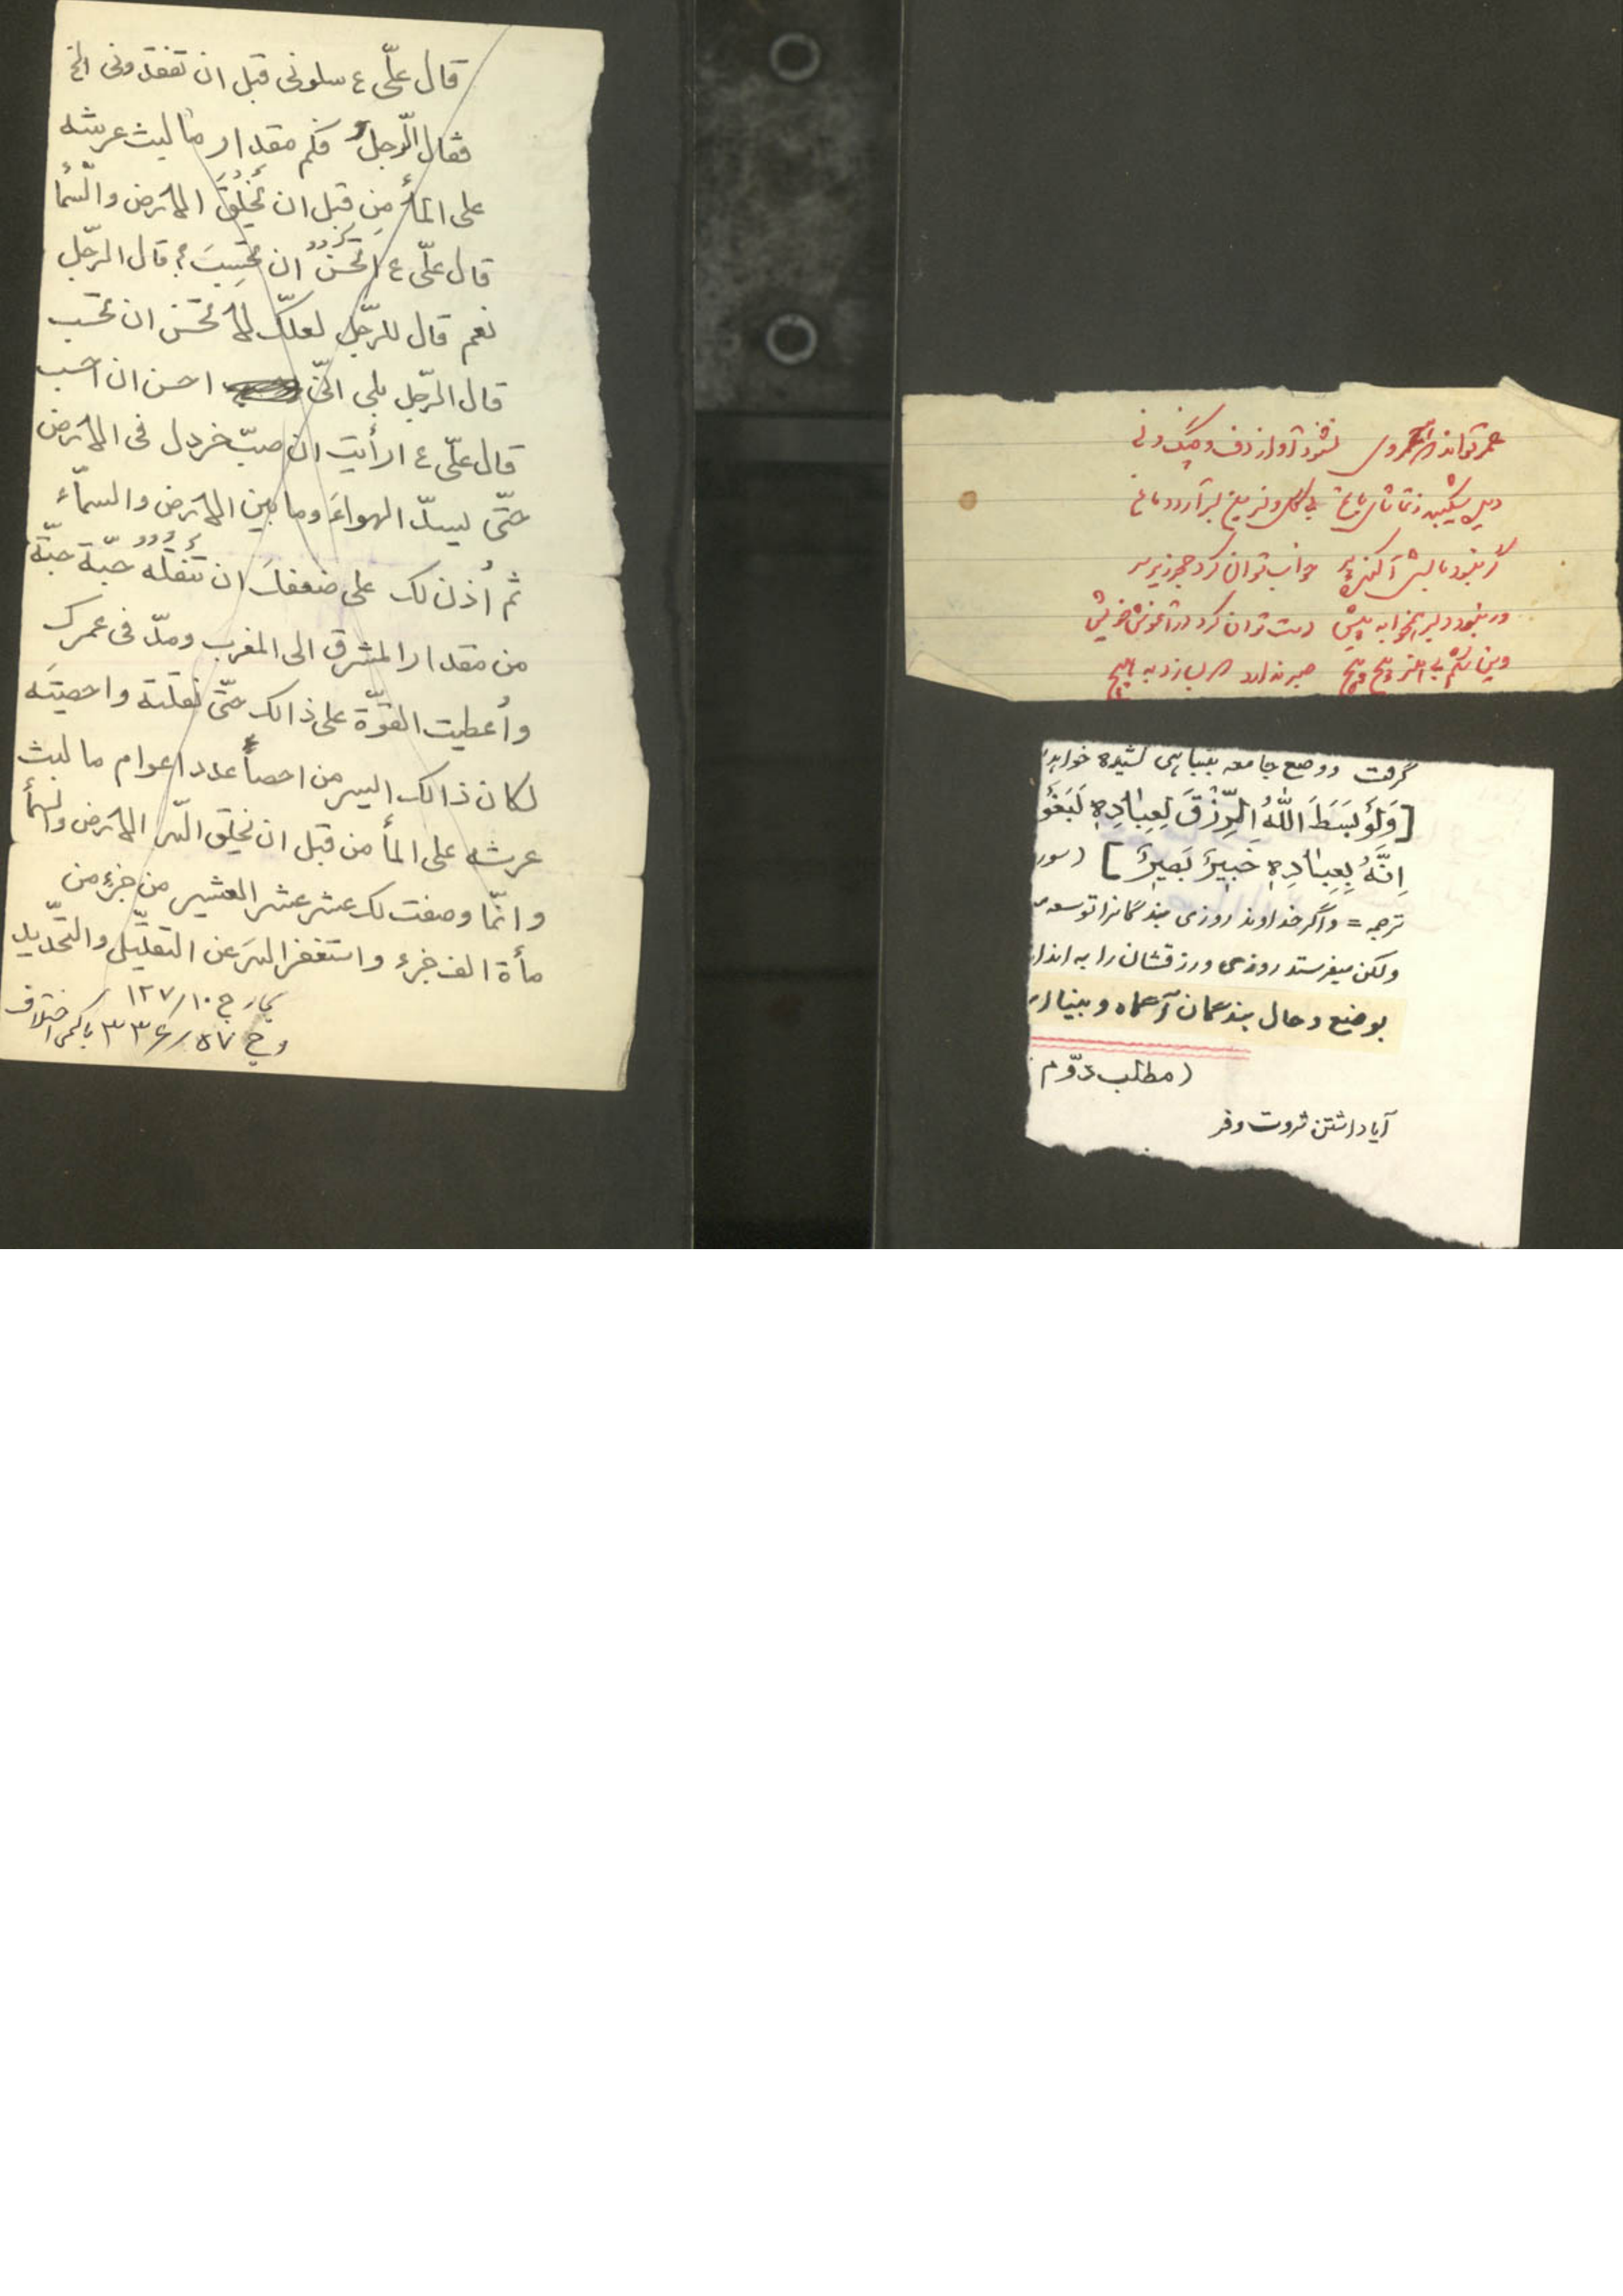 قال علّی ع سلونی قبل ان تفقدونی الخ
فقال الّرجل فکم مقدار ما لبث عرشه
علی المأ مِن قبل ان تُخلَقَ الارض والّسمأ
قال علّی ع اتُحْسنُ ان تحسِبَ؟ قال الرّجل
نعم قال للرّجل لعلّک لا تحسن ان تحسب
قال الرّجل بلی انّی احسن ان احسب
قال علّی ع ارأیت ان صبّ خردل فی الارض
حتّی لیسدّ الهواءَ وما بین الارض والسمآء
ثم اُذن لک علی ضعفکَ ان تنقُلَه حبّة حبّة
من مقدار المشرق الی المغرب ومدّ فی عمرک
واُعطیت القوّة علی ذالک حتّی نقلته واحصیتَه
لکان ذالک الیسر من احصأ عدد اعوام ما لبث
عرشه علی المأ من قبل ان یخلق اللّه الارض والسمأ
وانّما وصفت لک عشر عشر العشیر من جزءٍ من
مأة الف جزء واستغفر اللهَ عن التقلیل والتّحدید
بحار ج ۱۰/ ۱۲۷
و ج ۵۷/ ۳۳۶ باکمی اختلاف
نشنود آواز دف و چنگ و نی
دیده شکیبد ز تماشای باغ بی گل و نسرین بسر آرد دماغ
گر نبود بالش آکنده پر خواب توان کرد حجر زیر سر
ور نبود دلبر همخوابه پیش دست توان کرد در آغوش خویش
وین شکم بی هنر پیچ پیچ صبر ندارد که بسازد به هیچ
گرفت و وضع جامعه بتباهی کشیده خواهد
[وَلَوْ بَسَطَ اللّٰهُ الرِّزْقَ لِعِبٰادِهِ لَبَغَوْ
اِنَّهُ بِعِبٰادِهِ خَبیرٌ بَصیرٌ] (سور
ترجمه = واگر خداوند روزی بندگانرا توسعه
ولکن میفرستد روزی ورزقشان را به انداز
بوضع و حال بندگان آگاه و بینا ا
(مطلب دوّم
آیا داشتن ثروت وفر